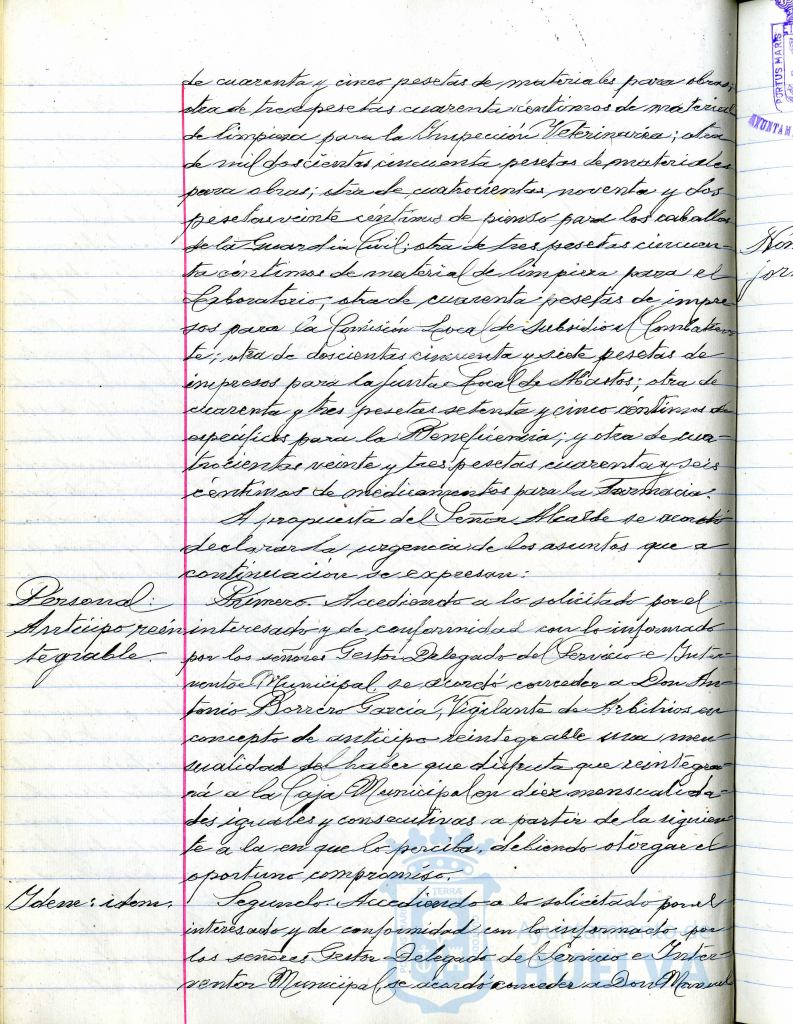 de cuarenta y cinco pesetas de materiales para obras;
otra de tres pesetas cuarenta céntimos de material
de limpieza para la Inspección Veterinaria; otra
de mil doscientas cincuenta pesetas de materiales
para obras; otra de cuatrocientas noventa y dos
pesetas veinte céntimos de pienso para los caballos
de la Guardia Civil; otra de tres pesetas cincuen-
ta céntimos de material de limpieza para el
Laboratorio; otra de cuarenta pesetas de impre-
sos para la Comisión Local de Subsidio al Combatien-
te; otra de doscientas cincuenta y siete pesetas de
impresos para la Junta Local de Abastos; otra de
cuarenta y tres pesetas setenta y cinco céntimos de
específicos para la Beneficencia; y otra de cua-
trocientas veinte y tres pesetas cuarenta y seis
céntimos de medicamentos para la Farmacia.
A propuesta del Señor Alcalde se acordó
declarar la urgencia de los asuntos que a
continuación se expresan:
Personal:
Anticipo rein-
tegrable.
Primero. Accediendo a lo solicitado por el
interesado y de conformidad con lo informado
por los señores Gestor Delegado del Servicio e Inter-
ventor Municipal, se acordó conceder a Don An-
tonio Borrero García, Vigilante de Arbitrios en
concepto de anticipo reintegrable una men-
sualidad del haber que disfruta que reintegra-
rá a la Caja Municipal en diez mensualida-
des iguales y consecutivas a partir de la siguien-
te a la en que lo perciba, debiendo otorgar el
oportuno compromiso.
Idem: idem.
Segundo. Accediendo a lo solicitado por el
interesado y de conformidad con lo informado por
los señores Gestor Delegado del Servicio e Inter-
ventor Municipal, se acordó conceder a Don Manuel
Ayuntamiento de
HUELVA
PORTUS MARIS
AYUNTAM
Nom
jor